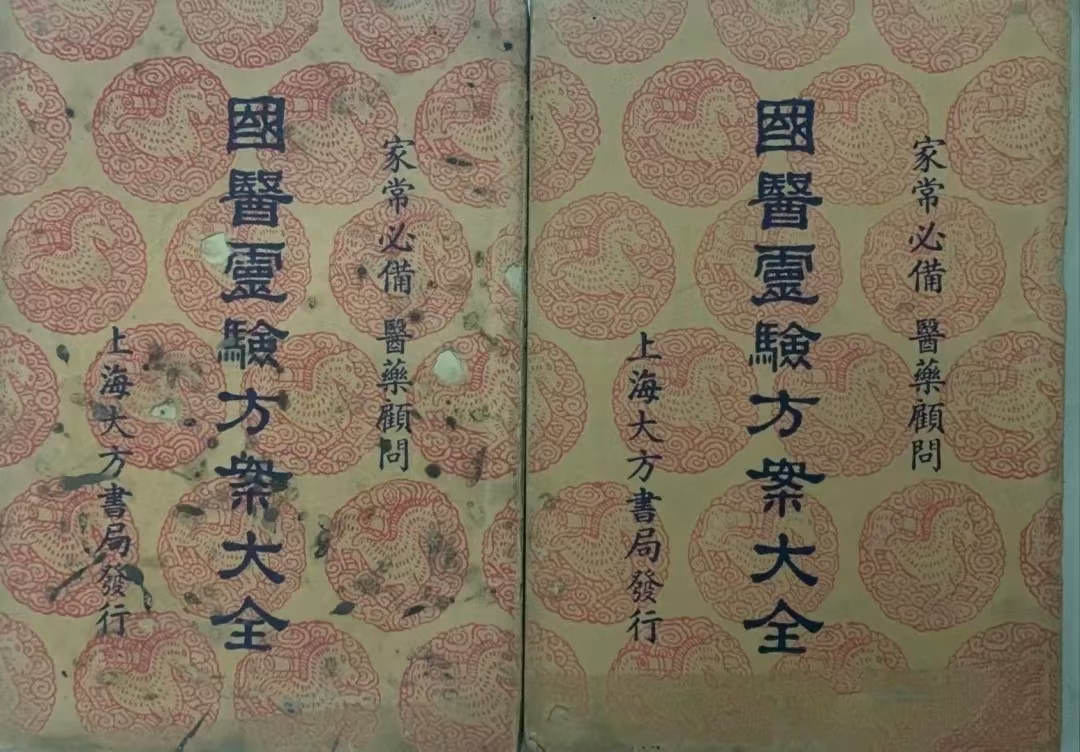 家常必備 醫藥顧問
國醫靈驗方案大全
上海大方書局發行
家常必備 醫藥顧問
國醫靈驗方案大全
上海大方書局發行